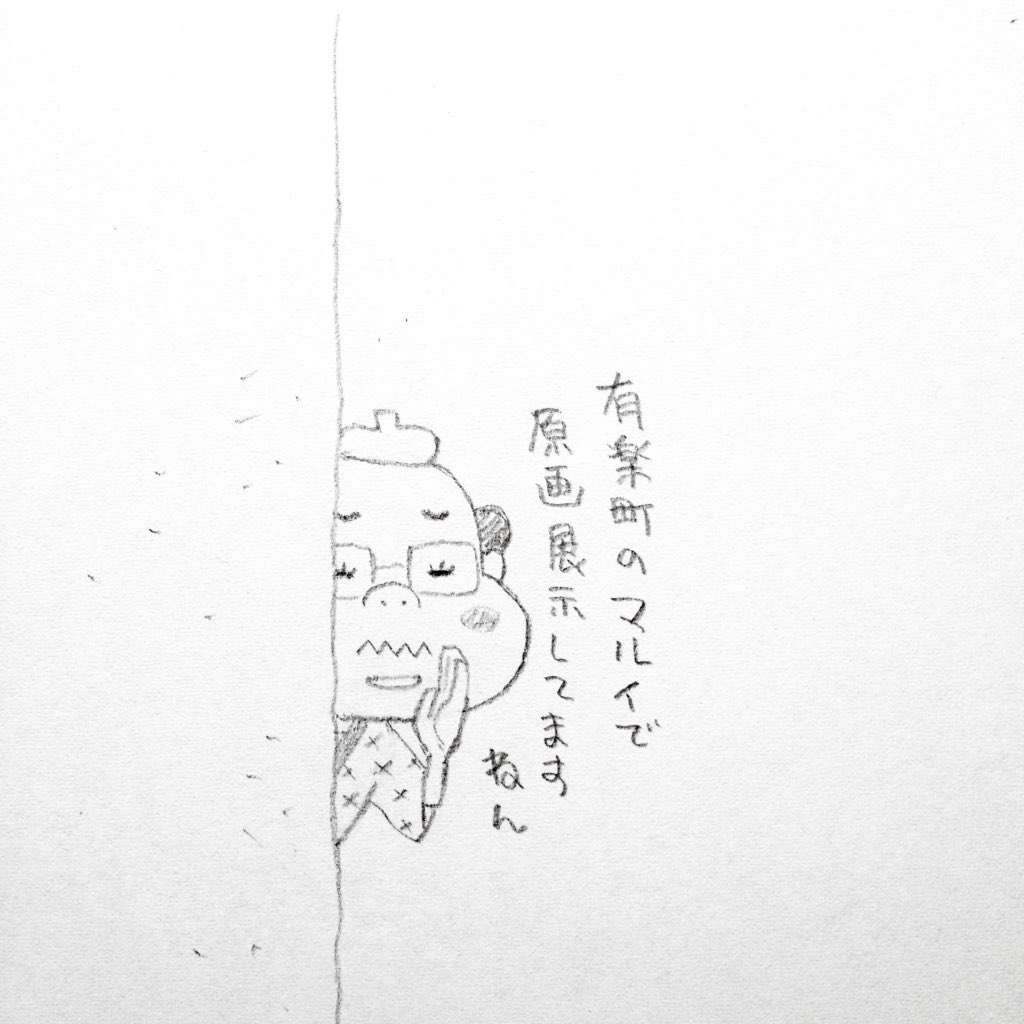 有楽町のマルイで
原画展示してます
ねん